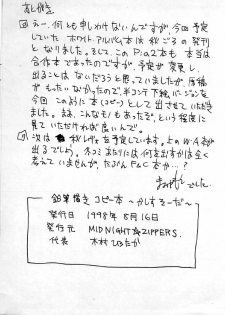 あとがき
えー、何とも申しわけないんですが、今回予定し
ていた ホワイトアルバム本は 秋ごろの発刊
となりました。そして、この Pia2本も、本当は
合作本であったのですが、予定が変更し、
出ることはないだろうと思っていましたが、原稿
がもったいなかったので、バージョンを
今回このように本(コピー)として出させていただき
ました。まぁ、こんなモノもあったな、という程度に
見ていただければ良いんで。
次は 秋レヴォを予定しています。上のW・A本が
出るでしょう。冬コミあたりには何を出すかは全く
考えていませんが、たぶん F&C本か…?
でした。
鉛筆描き コピー本 ～かしまるーだ～
発行日 1998年 8月16日
発行元 MIDNIGHT☆ZIPPERS.
代表 木村ひろたか